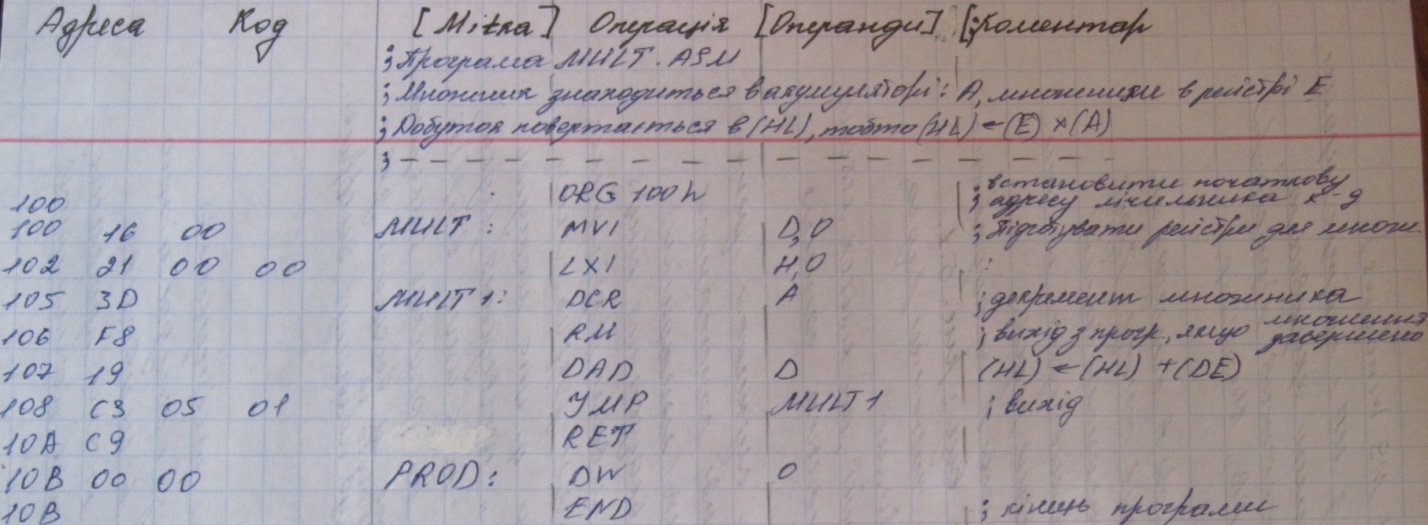 Адреса Код [Мітка] Операція [Операнди] [;Коментар
;Програма MULT.ASM
;Множник знаходиться в акумуляторі: A, множники в реїстрі E
;Добуток повертається в (HL), тобто (HL) ← (E) × (A)
; - - - - - - - - - - - - - - - -
100 ORG 100h ; встановити початкову
; адресу лічильника к д
100 16 00 MULT: MVI D,0 ; Підготувати реїстри для множ
102 21 00 00 LXI H,0 :
105 3D MULT1: DCR A ; декремент множника
106 F8 RM ; вихід з прогр, якщо множення завершено
107 19 DAD D (HL) ← (HL) + (DE)
108 C3 05 01 JMP MULT1 ; вихід
10A C9 RET
10B 00 00 PROD: DW 0
10B END ; кінець програми